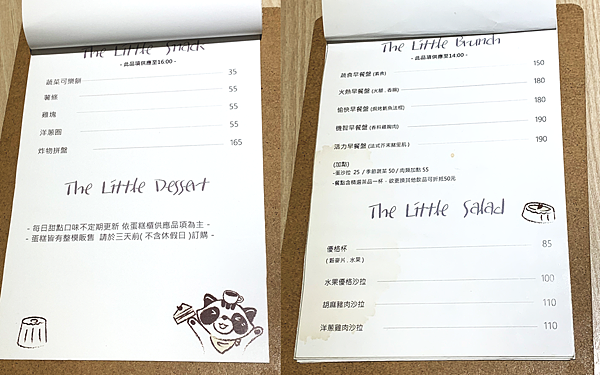 The Little Snack
- 此品項供應至16:00 -
蔬菜可樂餅 35
薯條 55
雞塊 55
洋蔥圈 55
炸物拼盤 165
The Little Dessert
- 每日甜點口味不定期更新 依蛋糕櫃供應品項為主 -
- 蛋糕皆有整模販售 請於三天前( 不含休假日 )訂購 -
The Little Brunch
- 此品項供應至14:00 -
蔬食早餐盤 (素食) 150
火熱早餐盤 (火腿 . 香腸) 180
愉快早餐盤 180
機智早餐盤 (香料雞胸肉) 190
活力早餐盤 190
(加點)
-蛋沙拉 25 / 季節蔬菜 50 / 肉類加點 55
-餐點含精選茶品一杯，欲更換其他飲品可折抵50元
The Little Salad
優格杯 85
( 穀麥片 . 水果 )
水果優格沙拉 100
胡麻豬肉沙拉 110
洋蔥雞肉沙拉 110